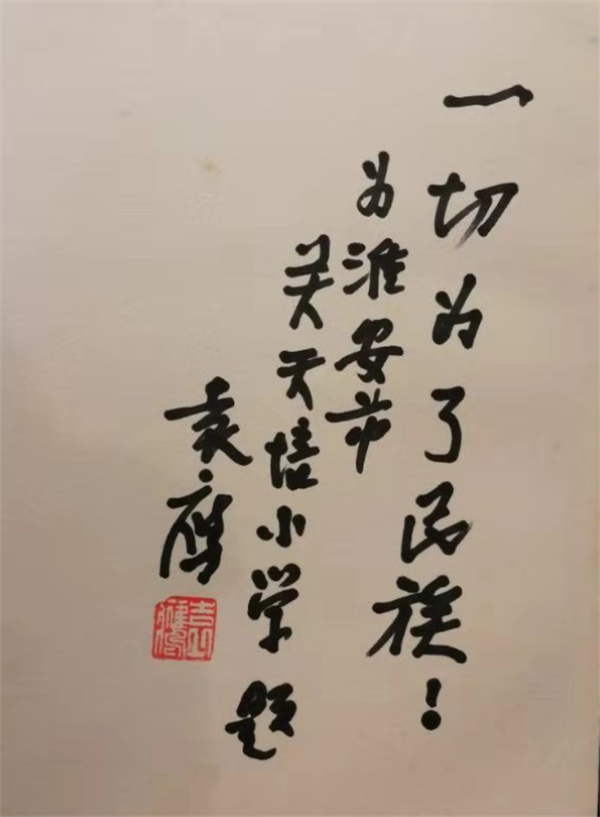 一切为了民族！
为淮安市
关天培小学题
袁鹰
袁鹰